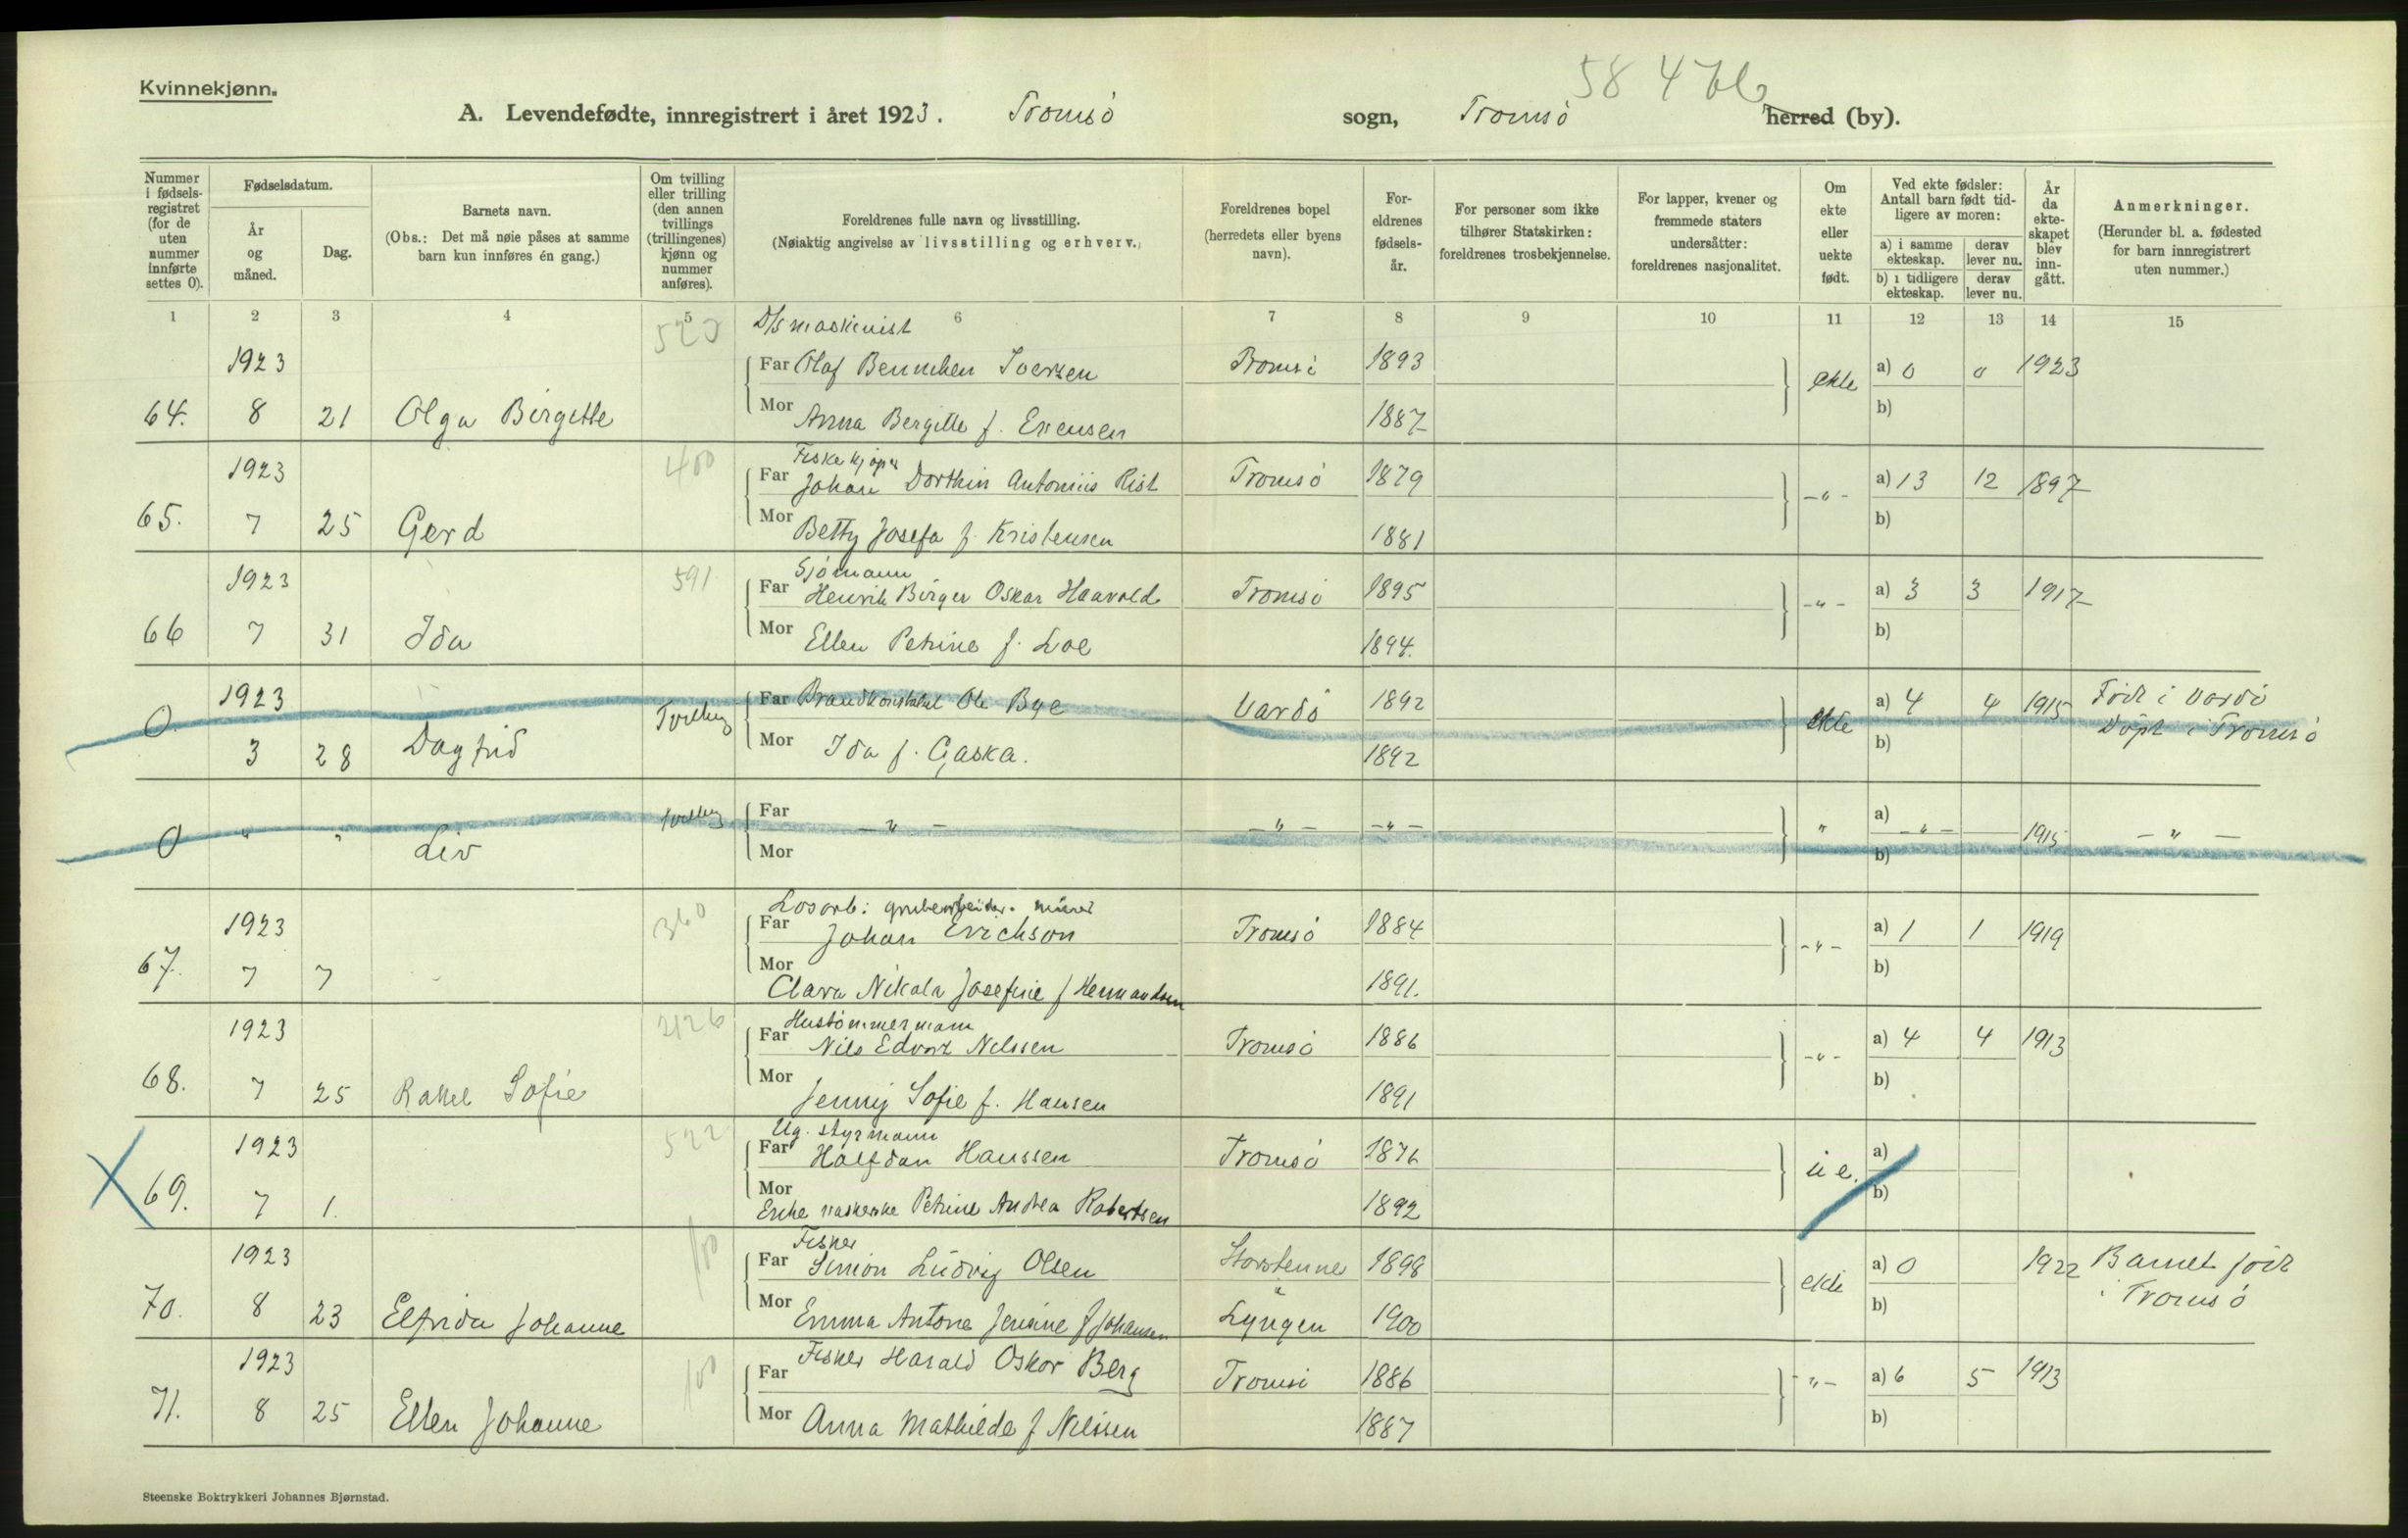 58 4
Kvinnekjønn.
A. Levendefødte, innregistrert i året 1923. Tromsö sogn, Tromsö herred (by).
Nummer i fødsels-registret (for de uten nummer innførte settes 0).
Fødselsdatum.
År og måned.
Dag.
Barnets navn.
(Obs.: Det må nøie påses at samme barn kun innføres én gang.)
Om tvilling eller trilling (den annen tvillings (trillingenes) kjønn og nummer anføres).
Foreldrenes fulle navn og livsstilling.
(Nøiaktig angivelse av livsstilling og erhverv.)
Foreldrenes bopel (herredets eller byens navn).
For-eldrenes fødsels-år.
For personer som ikke tilhører Statskirken: foreldrenes trosbekjennelse.
For lapper, kvener og fremmede staters undersåtter: foreldrenes nasjonalitet.
Om ekte eller uekte født.
Ved ekte fødsler: Antall barn født tid-ligere av moren:
a) i samme ekteskap.
derav lever nu.
b) i tidligere ekteskap.
derav lever nu.
År da ekte-skapet blev inn-gått.
Anmerkninger.
(Herunder bl. a. fødested for barn innregistrert uten nummer.)
1 2 3 4 5 6 7 8 9 10 11 12 13 14 15
D/s maskinist
1923 Far Olaf Bennichen Iversen Tromsö 1893 ekte a) 0 0 1923
64. 8 21 Olga Birgitte Mor Anna Bergitte f. Evensen 1887 b)
400 Fiskekjøper
1923 Far Johan Dorthin Antoniis Rist Tromsö 1879 -"- a) 13 12 1897
65. 7 25 Gerd Mor Betty Josefa f. Kristensen 1881 b)
591 Sjömann
1923 Far Henrik Birger Oskar Haavold Tromsö 1895 -"- a) 3 3 1917
66 7 31 Ida Mor Ellen Petrine f. Loe 1894. b)
0 1923 Tvilling Far Brandkonstabel Ole Bye Vardö 1892 ekte a) 4 4 1915 Född i Vardö
3 28 Dagfrid Mor Ida f. Gaska. 1892 b) Döpt i Tromsö
0 " " Liv Tvilling Far -"- -"- -"- " a) -"- 1915 -"-
Mor b)
360 Losarb: grubearbeider. minør
1923 Far Johan Erichson Tromsö 1884 -"- a) 1 1 1919
67. 7 7 Mor Clara Nikola Josefine f Hermandsen 1891. b)
2126 Hustömmermann
1923 Far Nils Edvart Nilssen Tromsö 1886 -"- a) 4 4 1913
68. 7 25 Rakel Sofie Mor Jenny Sofie f. Hansen 1891 b)
522 Ug. styrmann
1923 Far Halfdan Hanssen Tromsö 1876 u e. a)
69. 7 1. Mor Enke Petrine Andrea Robertsen 1892 b)
100 Fisker
1923 Far Simon Ludvig Olsen Storstenne 1898 ekte a) 0 1922 Barnet föd
70. 8 23 Elfrida Johanne Mor Emma Antone Jensine f Johansen Lyngen 1900 b) i Tromsö
1923 100 Far Fisker Harald Oskar Berg Tromsö 1886 -"- a) 6 5 1913
71. 8 25 Ellen Johanne Mor Anna Mathilde f Nilssen 1887 b)
Steenske Boktrykkeri Johannes Bjørnstad.